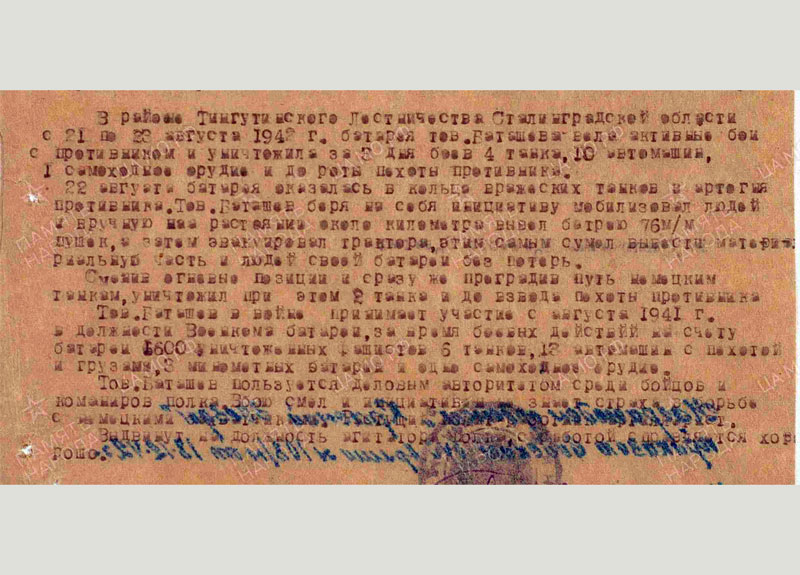 В районе Тингутинского Лестничества Сталинградской области
с 21 по 23 августа 1942 г. батарея тов.Баташева вела активные бои
с противником и уничтожила за 3 дня боев 4 танка,10 автомашин,
1 самоходное орудие и до роты пехоты противника.
22 августа батарея оказалась в кольце вражеских танков и
противника.Тов.Баташев беря на себя инициативу мобилизовал людей
и вручную на растоянии около километра вывел батрею 76м/м
пушек,а затем эвакуировал трактора,этим самым сумел вывести матери
риальную часть и людей своей батареи без потерь.
Сменив огневые позиции и сразу же преградив путь немецким
танкам,уничтожил при этом 2 танка и до взвода пехоты противника
Тов.Баташев в войне принимает участие с августа 1941 г.
в должности Военкома батареи,за время боевых действий на счету
батареи 1600 уничтоженных фашистов 6 танков,13 автомашин с пехотой
и грузами,3 минометных батареи и одно самоходное орудие.
Тов.Баташев пользуется деловым авторитетом среди бойцов и
командиров полка.В бою смел и страха в борьбе
с немецкими
Выдвинут на должность агитатора полка,с работой справляется хо
рошо.
ПАМЯТЬ НАРОДА